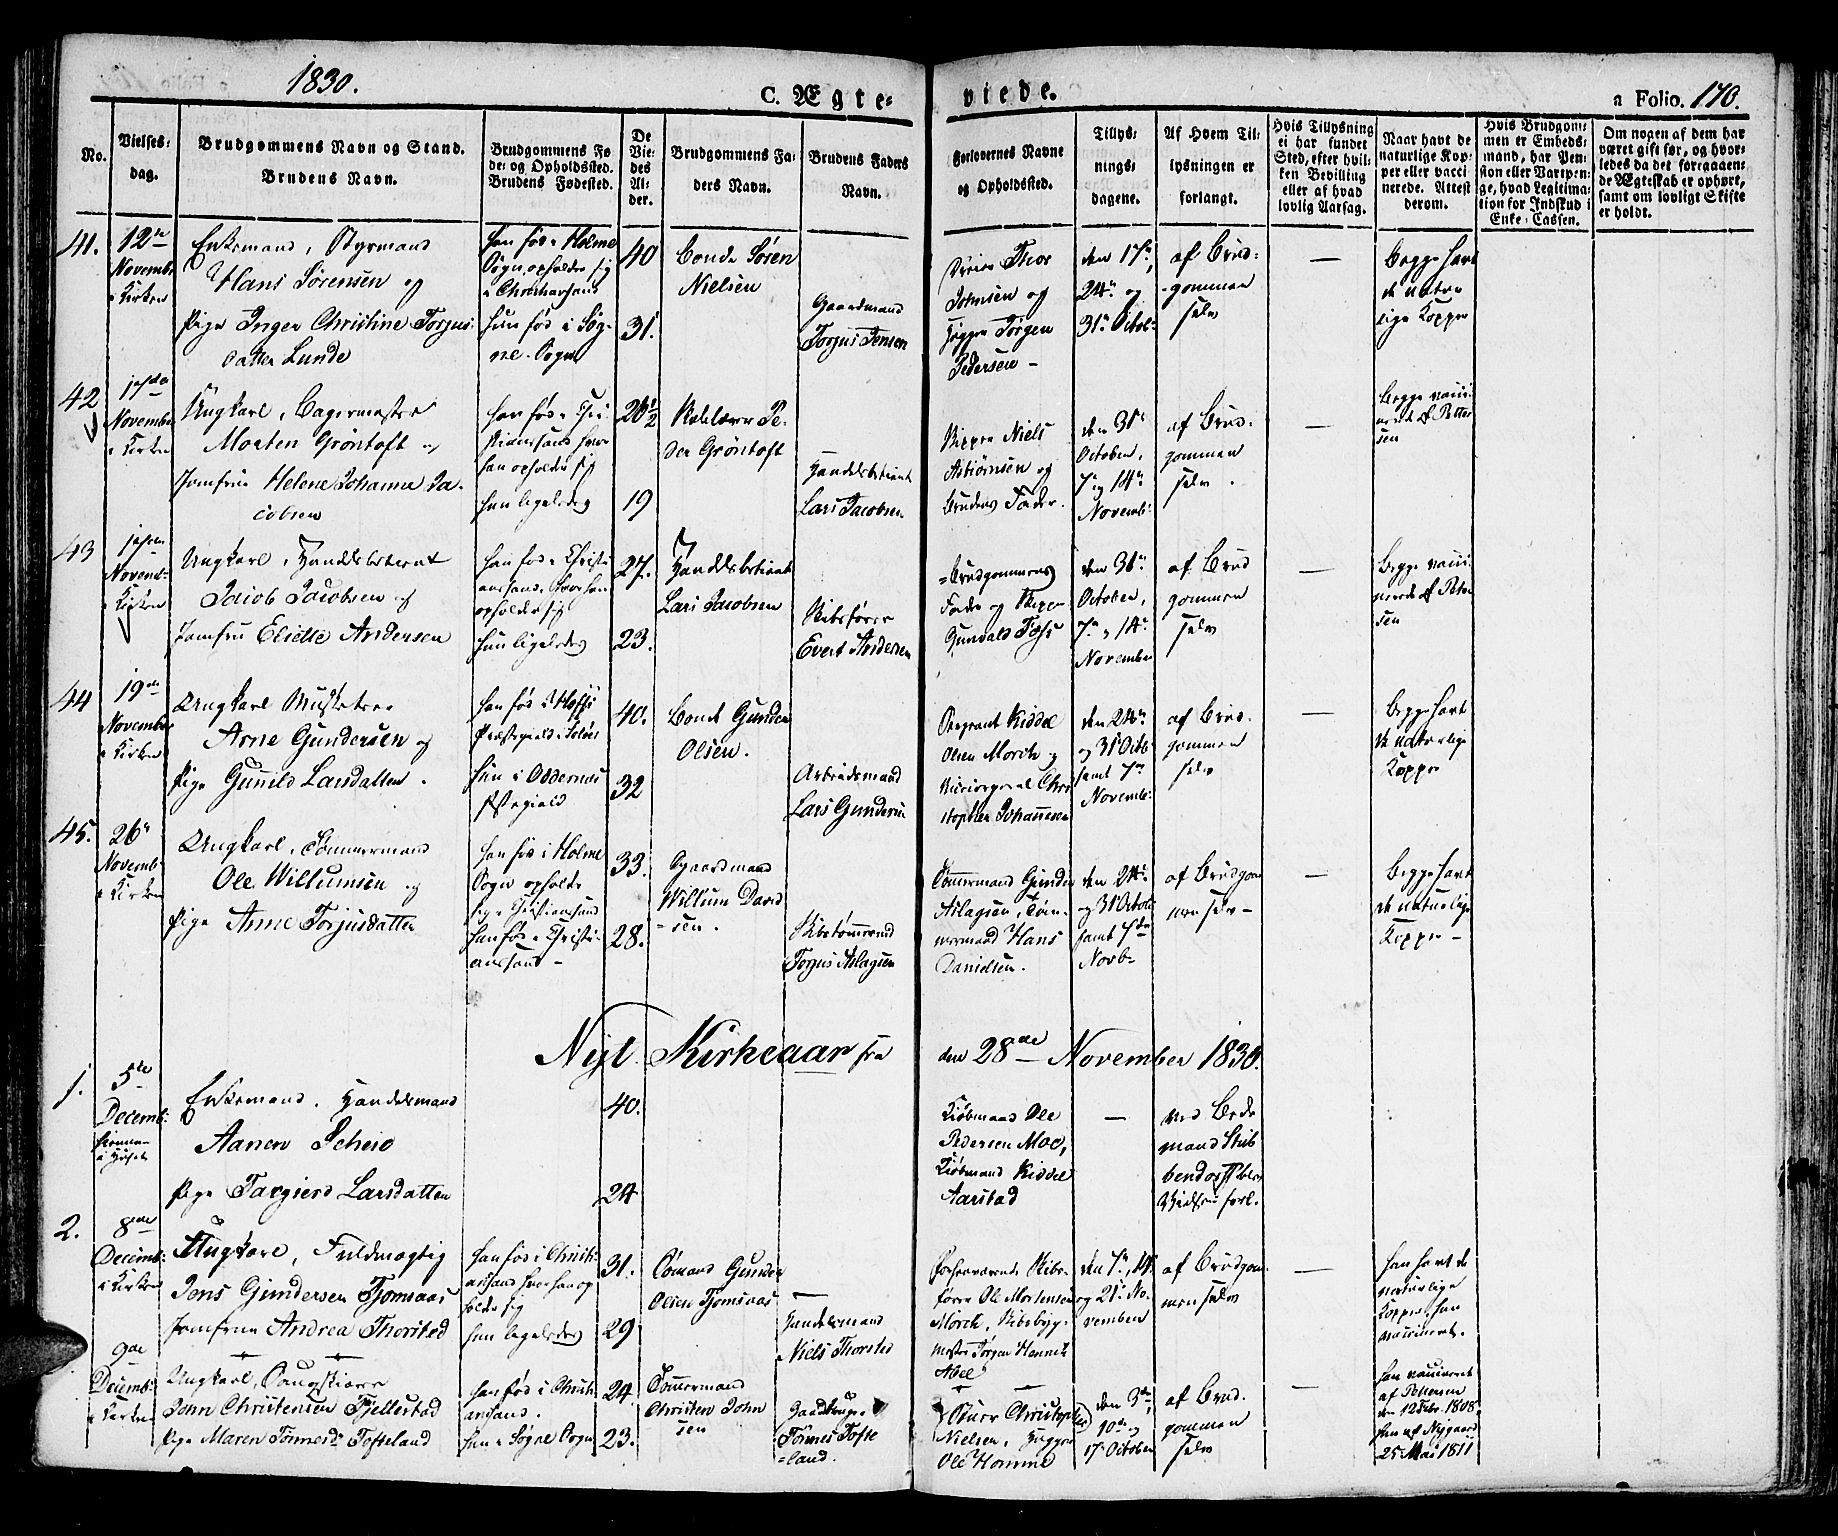 1830.
C. Ægte-
viede.
a Folio. 170.
No.
Vielses-
dag.
Brudgommens Navn og Stand.
Brudens Navn.
Brudgommens Fø
de- og Opholdssted.
Brudens Fødested.
De
Vie-
des
Al-
der.
Brudgommens Fa-
ders Navn.
Brudens Faders
Navn.
Forlovernes Navne
og Opholdssted.
Tillys-
nings-
dagene.
Af Hvem Til-
lysningen er
forlangt.
Hvis Tillysning
ei har fundet
Sted, efter hvil-
ken Bevilling
eller af hvad
lovlig Aarsag.
Naar havt de
naturlige Kop-
per eller vacci
nerede. Attest
derom.
Hvis Brudgom-
men er Embeds-
mand, har Pen-
sion eller Vartpen-
ge, hvad Legitima-
tion for Indskud i
Enke-Cassen.
Om nogen af dem har
været gift før, og hvor-
ledes da det foregaaen-
de Ægteskab er ophørt,
samt om lovligt Skifte
er holdt.
41.
12te
Novemb:
i Kirken
Enkemand, Styrmand
Hans Sørensen og
Pige Inger Christine Torjus-
datter Lunde
han fød i Holme
Sogn, opholder sig
i Christiansand
hun fød i Søg-
ne-Sogn
40
31.
Bonde Søren
Nielsen
Gaardmand
Torjus Jensen
Thor
Johnsen og
Jørgen
Pedersen -
den 17de,
24de og
31te Octob:
af Brud-
gommen
selv
—
Begge havt
de natur
lige Kopper
42
17de
November
i Kirken
Ungkarl, Bagermester
Morten Grøntoft og
Jomfrue Helene Johanne Ja-
cobsen
han fød i Chri
stiansand hvor
han opholder sig
hun ligeledes
26½
19
Pe-
der Grøntoft
Handelsbetient
Lars Jacobsen
Skipper Niels
Asbiörnsen og
Brudens Fader.
den 31te
October,
7de og 14de
Novemb:
af Brud-
gommen
selv.
—
Begge vacci-
nerede af Petter
sen
43
17de
Novemb:
i Kirken
Ungkarl, Handelsbetient
Jacob Jacobsen og
Jomfru Eliette Andersen
han fød i Christi
ansand, hvor han
opholder sig
hun ligeledes
27.
23.
Handelsbetient
Lars Jacobsen
Skibsfører
Evert Andersen
Brudgommens
Fader og Skipper
Gunvald
den 31te
October,
7de og 14de
November
af Brud
gommen
selv
—
Begge vacci
nerede af Peter
sen
44
19de
November
i Kirken
Ungkarl Musketeer
Arne Gundersen og
Pige Gunild Larsdatter.
han fød i
Præstegield i Soløer
hun i Oddernæs
Præstegield
40.
32
Bonde Gunder
Olsen.
Arbeidsmand
Lars Gundersen
Sergeant Kiddel
Olsen Morch og
Chri
stopher Johannesen
den 24de
og 31te Octob:
samt 7de
Novemb:
af Brud-
gommen
selv
—
Begge havt
de naturlige
Kopper
45.
26de
Novemb:
i Kirken
Ungkarl, Tømmermand
Ole Willumsen og
Pige Anne Torjusdatter
han fød i Holme
Sogn opholder
sig i Christiansand
hun fød i Christi-
ansand -
33.
28.
Gaardmand
Willum David
-sen.
Skibstømmermand
Torjus Aslagsen
Tømmermand Gunder
Aslagsen, Tøm-
mermand Hans
Danielsen.
den 24de
og 31te Octob:
samt 7de
Novb-
af Brudgom
men selv -
—
Begge havt
de naturlige
Kopper -
Nyt Kirkeaar fra
den 28de November 1830.
1.
5te
Decemb:
hiemme
i Huset
Enkemand. Handelsmand
Aanen Scheie
Pige Targierd Larsdatter
40.
24
Kiøbmand Ole
Pedersen Moe,
Kiøbmand Kiddel
Aarstad
—
ved Bede
mand Stub
bendorff blev
Vielsen forl.
2.
8de
Decemb:
i Kirken
Ungkarl, Fuldmægtig
Jens Gundersen Tjomsaas
Jomfrue Andrea Thorsted
han fød i Christi-
ansand hvor han op
holder sig
hun ligeledes
31.
29
Gunder
Olsen Tjomsaas
Handelsmand
Niels Thorsted
Forhenværende Skibs-
fører Ole Mortensen
Morch, Skibsbyg-
mester Jørgen Henrik
Abel
den 7de, 14de
og 21de No-
vember
af Brudgom-
men selv
—
han havt de
naturlige
Kopper, hun
vaccineret.
9de
Decemb:
i Kirken
Ungkarl,
John Christensen Fjellestad
Pige Maren Tønnesdr Tofteland
han fød i Christi
ansand.
hun i Søgne Sogn
24.
23.
Tømmermand
Christen John
sen
Gaardbruger
Tønnes Tofte
-land.
Christopher
Nielsen,
Ole Homme
den 3die,
10de og
17de October
af Brud-
gommen
selv
—
han vaccineret
af Petersen
den 12 Febr. 1808
hun af Nygaard
25 Mai 1811